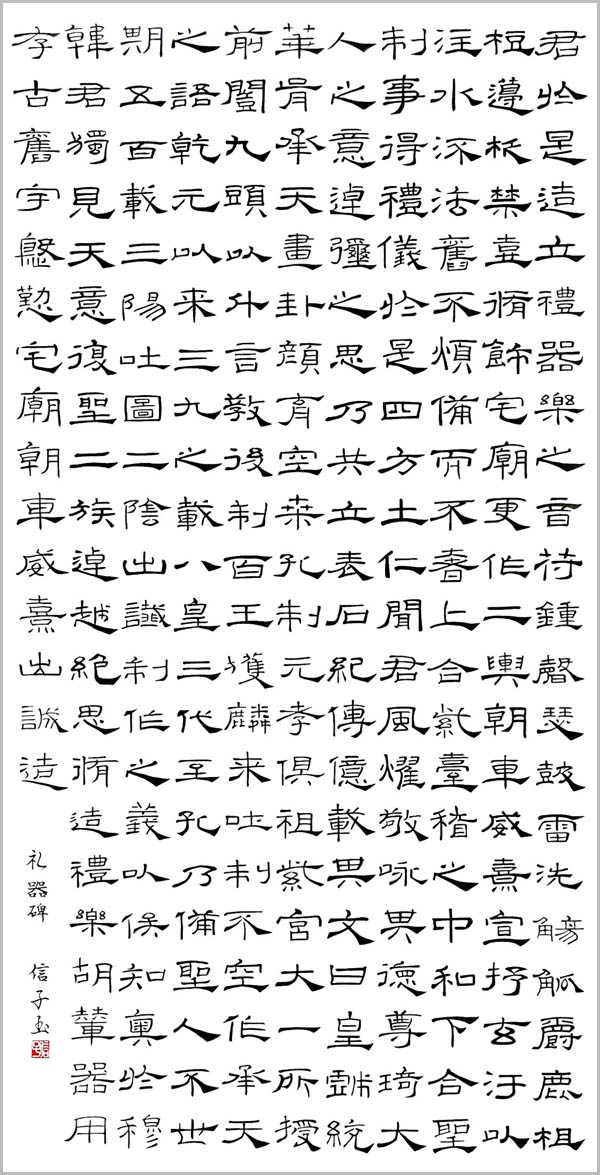 君於是造立禮器樂之音符鍾磬瑟鼓雷洗觴觚爵鹿柤
梪籩柉禁壺脩飾宅廟更作二輿朝車威熹宣抒玄汙以
注水流法舊不煩備而不奢上合紫臺稽之中和下合聖
制事得禮儀於是四方土仁聞君風燿敬咏其德尊琦大
人之意逴彌之思乃共立表石紀傳億載其文曰皇戲統
華胥承天畫卦顏育空桑孔制元孝俱祖紫宮大一所授
前闓九頭以升言教後制百王獲麟来吐制不空作承天
之語乾元以来三九之載八皇三代至孔乃備聖人不世
期五百載三陽吐圖二陰出讖制作之義以俟知奧於穆
韓君獨見天意復聖二族逴越絕思脩造禮樂胡輦器用
存古舊宇慇懃宅廟朝車威熹出誠造
礼器碑 信子玉